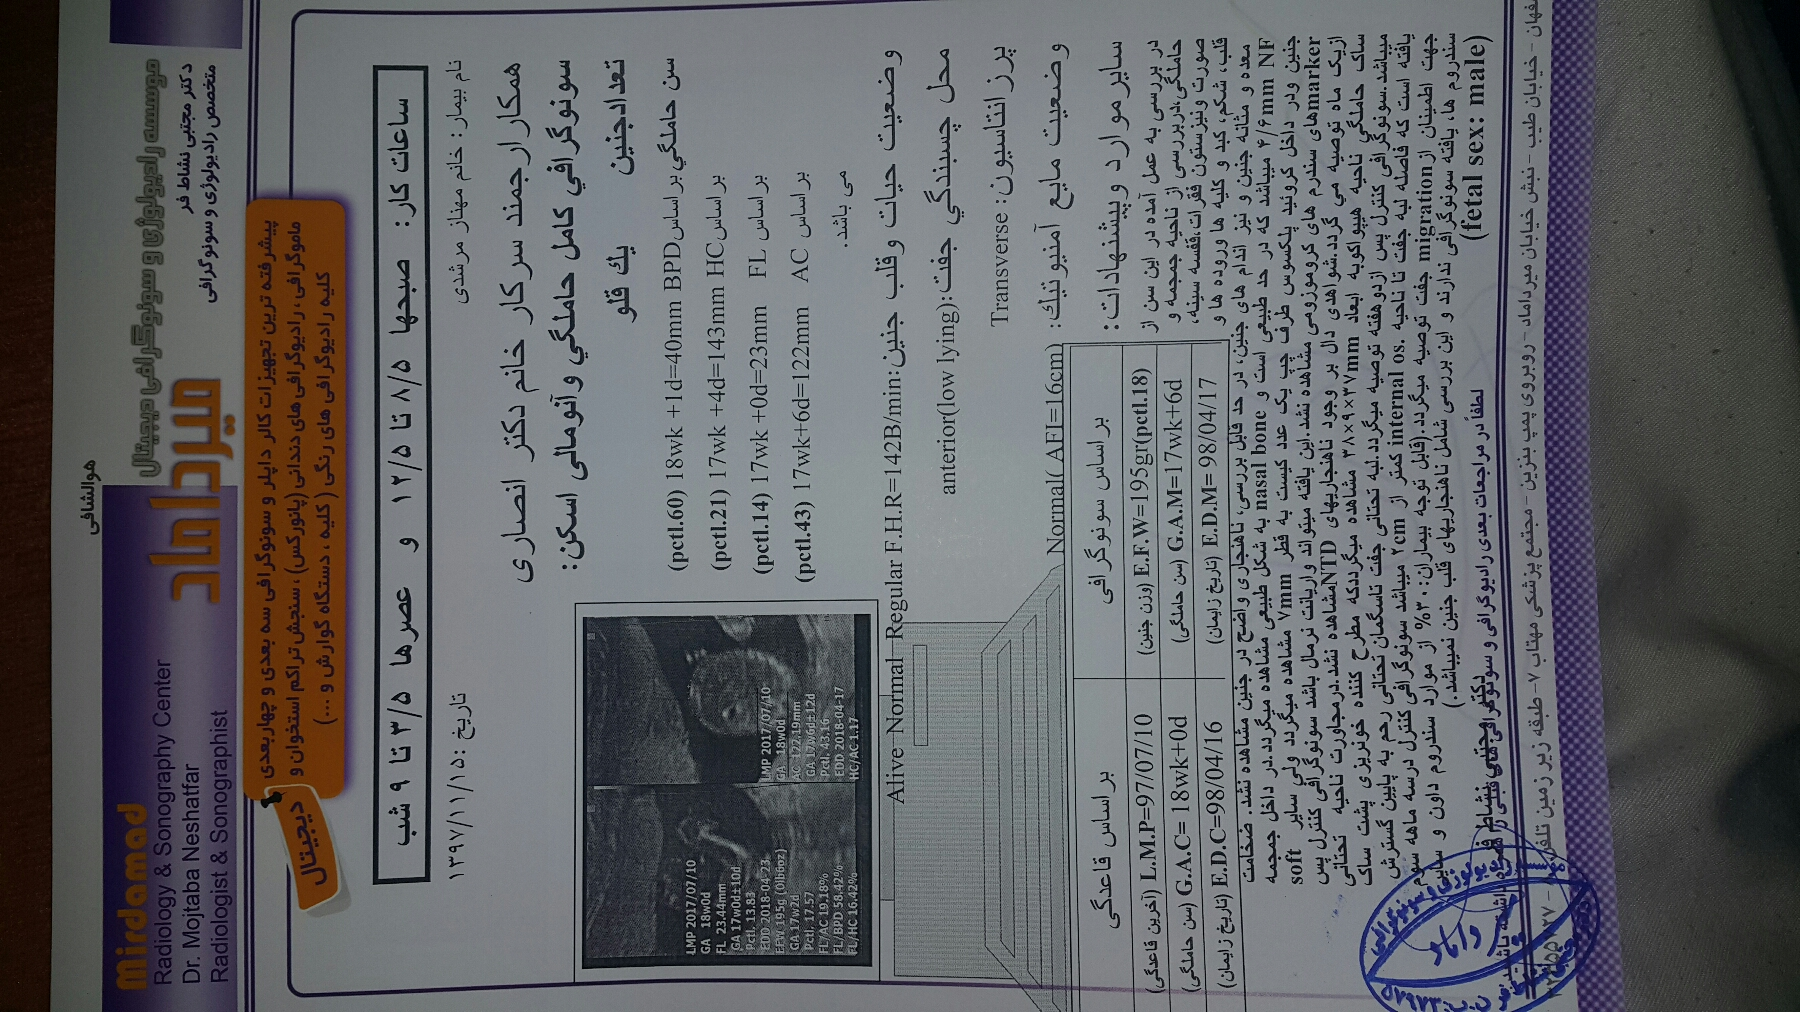 هوالشافی
mirdamad
Radiology & Sonography Center
Dr. Mojtaba Neshatfar
Radiologist & Sonographist
موسسه رادیولوژی و سونوگرافی دیجیتال
میرداماد
دکتر مجتبی نشاط فر
متخصص رادیولوژی و سونوگرافی
دیجیتال
پیشرفته ترین تجهیزات کالر داپلر و سونوگرافی سه بعدی و چهار بعدی
ماموگرافی، رادیوگرافی های دندانی (پانورکس)، سنجش تراکم استخوان و
کلیه رادیوگرافی های رنگی (کلیه، دستگاه گوارش و ...)
ساعات کار: صبحها ۸/۵ تا ۱۲/۵ و عصرها ۳/۵ تا ۹ شب
نام بیمار: خانم مهناز مرشدی
تاریخ: ۱۳۹۷/۱۱/۱۵
همکار ارجمند سرکار خانم دکتر انصاری
سونوگرافي کامل حاملگي وآنومالی اسکن:
تعدادجنين يك قلو
سن حاملگي براساس BPD 18wk +1d=40mm (pctl.60)
براساس HC 17wk +4d=143mm (pctl.21)
براساس FL 17wk +0d=23mm (pctl.14)
براساس AC 17wk+6d=122mm (pctl.43)
می باشد.
LMP 2017/07/10
GA 18w0d
FL 23.44mm
GA 17w0d±10d
Pctl. 13.83
EDD 2018-04-23
EFW 195g (0lb6oz)
GA 17w2d
Pctl. 17.57
FL/AC 19.18%
FL/BPD 58.42%
FL/HC 16.42%
LMP 2017/07/10
GA 18w0d
AC 122.19mm
GA 17w6d±12d
Pctl. 43.16
EDD 2018-04-17
HC/AC 1.17
وضعيت حيات وقلب جنين: Alive Normal Regular F.H.R=142B/min
محل چسبندگي جفت: anterior(low lying)
پرزانتاسيون: Transverse
وضعيت مايع آمنيوتيك: Normal( AFI=16cm)
براساس سونوگرافی
براساس قاعدگی
E.F.W=195gr(pctl.18) (وزن جنین)
L.M.P=97/07/10 (آخرین قاعدگی)
G.A.M=17wk+6d (سن حاملگی)
G.A.C= 18wk+0d (سن حاملگی)
E.D.M= 98/04/17 (تاریخ زایمان)
E.D.C=98/04/16 (تاریخ زایمان)
سایر موارد وپیشنهادات:
در بررسی به عمل آمده در این سن از
حاملگی،دربررسی از ناحیه جمجمه و
صورت ونیزستون فقرات،قفسه سینه،
قلب، شکم، کبد و کلیه ها وروده ها و
معده و مثانه جنین و نیز اندام های جنین، در حد قابل بررسی، ناهنجاری واضح در جنین مشاهده نشد. ضخامت
NF ۴/۶mm میباشد که در حد طبیعی است و nasal bone به شکل طبیعی مشاهده میگردد.در داخل جمجمه
جنین ودر داخل کرونید پلکسوس طرف چپ یک عدد کیست به قطر ۷mm مشاهده میگردد ولی سایر soft
markerهای سندرم های کروموزومی مشاهده نشد.این یافته میتواند واریانت نرمال باشد سونوگرافی کنترل پس
ازیک ماه توصیه می گردد.شواهدی دال بر وجود ناهنجاریهای NTDمشاهده نشد.درمجاورت ناحیه تحتانی
ساک حاملگی ناحیه هیپواکویه ابعاد ۳۸×۹×۳۷mm مشاهده میگرددکه مطرح کننده خونریزی پشت ساک
میباشد.سونوگرافی کنترل پس ازدوهفته توصیه میگردد.لبه تحتانی جفت تاسگمان تحتانی رحم به پایین گسترش
یافته است که فاصله لبه جفت تا ناحیه internal os. کمتر از ۲cm میباشد سونوگرافی کنترل درسه ماهه سوم
جهت اطمینان ازmigration جفت توصیه میگردد.(قابل توجه بیماران: ۳۰% از موارد سندروم داون و سایر
سندروم ها، یافته سونوگرافی ندارند و این بررسی شامل ناهنجاریهای قلب جنین نمیباشد.)
(fetal sex: male)
دکتر مجتبی نشاط فر
لطفاً در مراجعات بعدی رادیوگرافی و سونوگرافی های قبلی را همراه داشته باشید
خیابان طیب - نبش خیابان میرداماد - روبروی پمپ بنزین - مجتمع پزشکی مهتاب ۷- طبقه زیر زمین